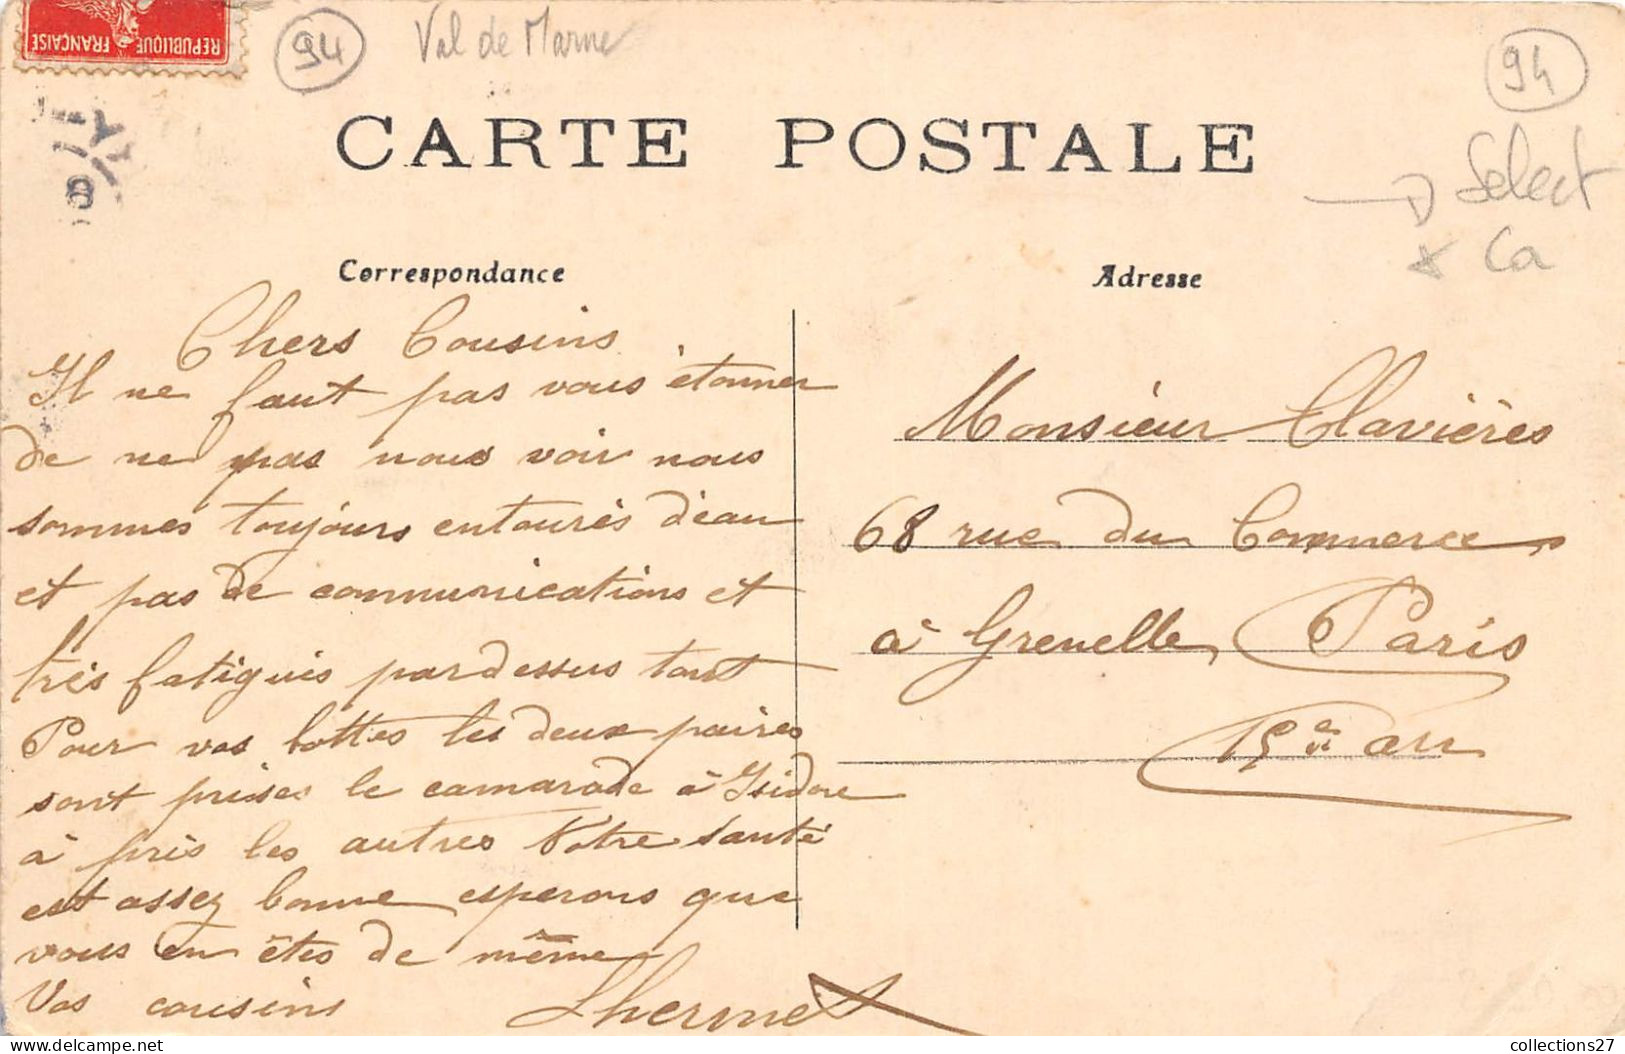 REPUBLIQUE FRANÇAISE
94
Val de Marne
94
CARTE POSTALE
Select
Ca
Correspondance
Adresse
Chers Cousins
Il ne faut pas vous étonner
de ne pas nous voir nous
sommes toujours entourés d'eau
et pas de communications et
très fatigués pardessus tout
Pour vos bottes les deux paires
sont prises le camarade à Isidore
à pris les autres Notre santé
est assez bonne esperons que
vous en êtes de même
Vos cousins Lhermet
Monsieur Clavières
68 rue du Commerce
à Grenelle Paris
15e arr
collections27